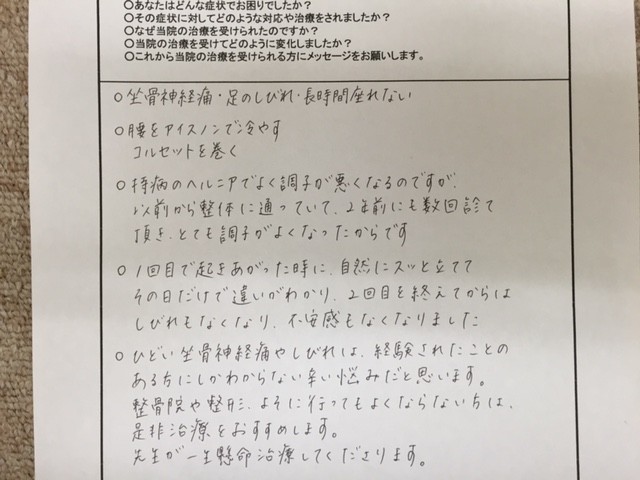 ○あなたはどんな症状でお困りでしたか？
○その症状に対してどのような対応や治療をされましたか？
○なぜ当院の治療を受けられたのですか？
○当院の治療を受けてどのように変化しましたか？
○これから当院の治療を受けられる方にメッセージをお願いします。
○坐骨神経痛・足のしびれ・長時間座れない
○腰をアイスノンで冷やす
コルセットを巻く
○持病のヘルニアでよく調子が悪くなるのですが、
以前から整体に通っていて、2年前にも数回診て
頂き、とても調子がよくなったからです
○1回目で起きあがった時に、自然にスッと立てて
その日だけで違いがわかり、2回目を終えてからは
しびれもなくなり、不安感もなくなりました
○ひどい坐骨神経痛やしびれは、経験されたことの
ある方にしかわからない辛い悩みだと思います。
整骨院や整形、よそに行ってもよくならない方は、
是非治療をおすすめします。
先生が一生懸命治療してくださります。